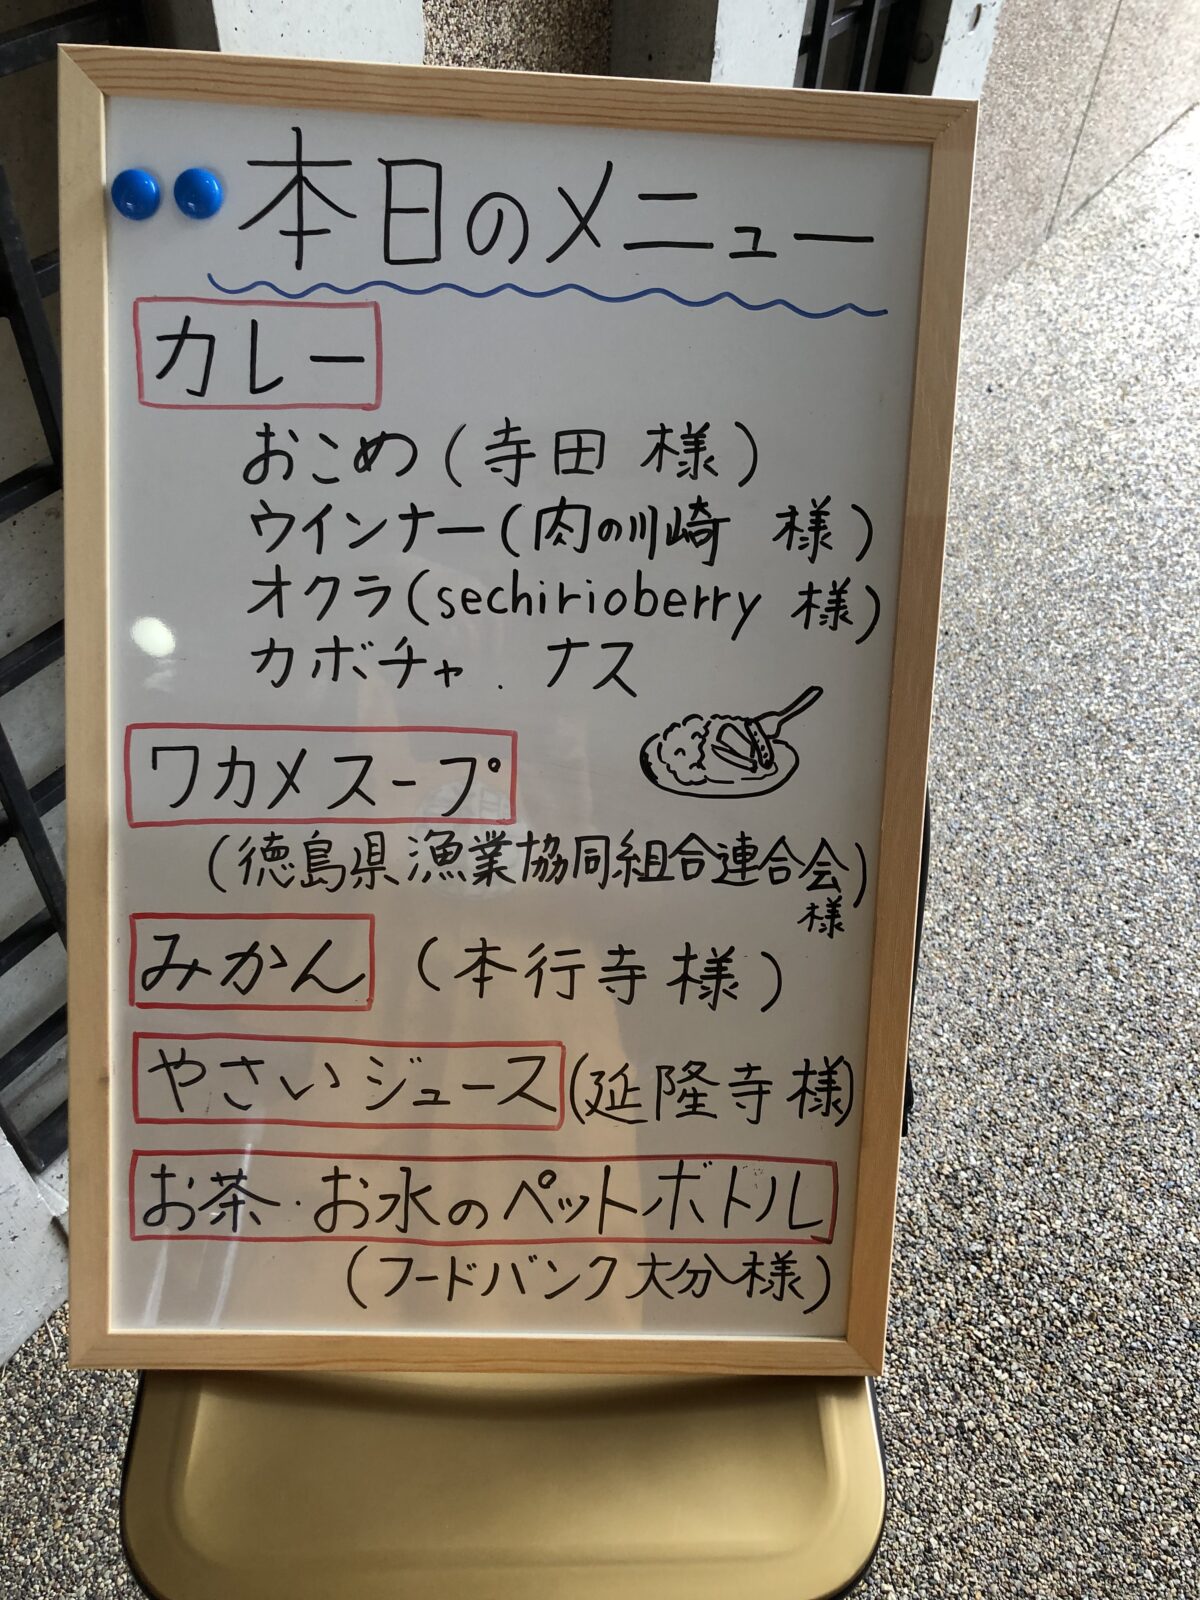 本日のメニュー
カレー
おこめ(寺田 様)
ウインナー(肉の川崎 様)
オクラ(sechirioberry 様)
カボチャ.ナス
ワカメスープ
(徳島県漁業協同組合連合会)
様
みかん (本行寺様)
やさいジュース(延隆寺様)
お茶・お水のペットボトル
(フードバンク大分様)